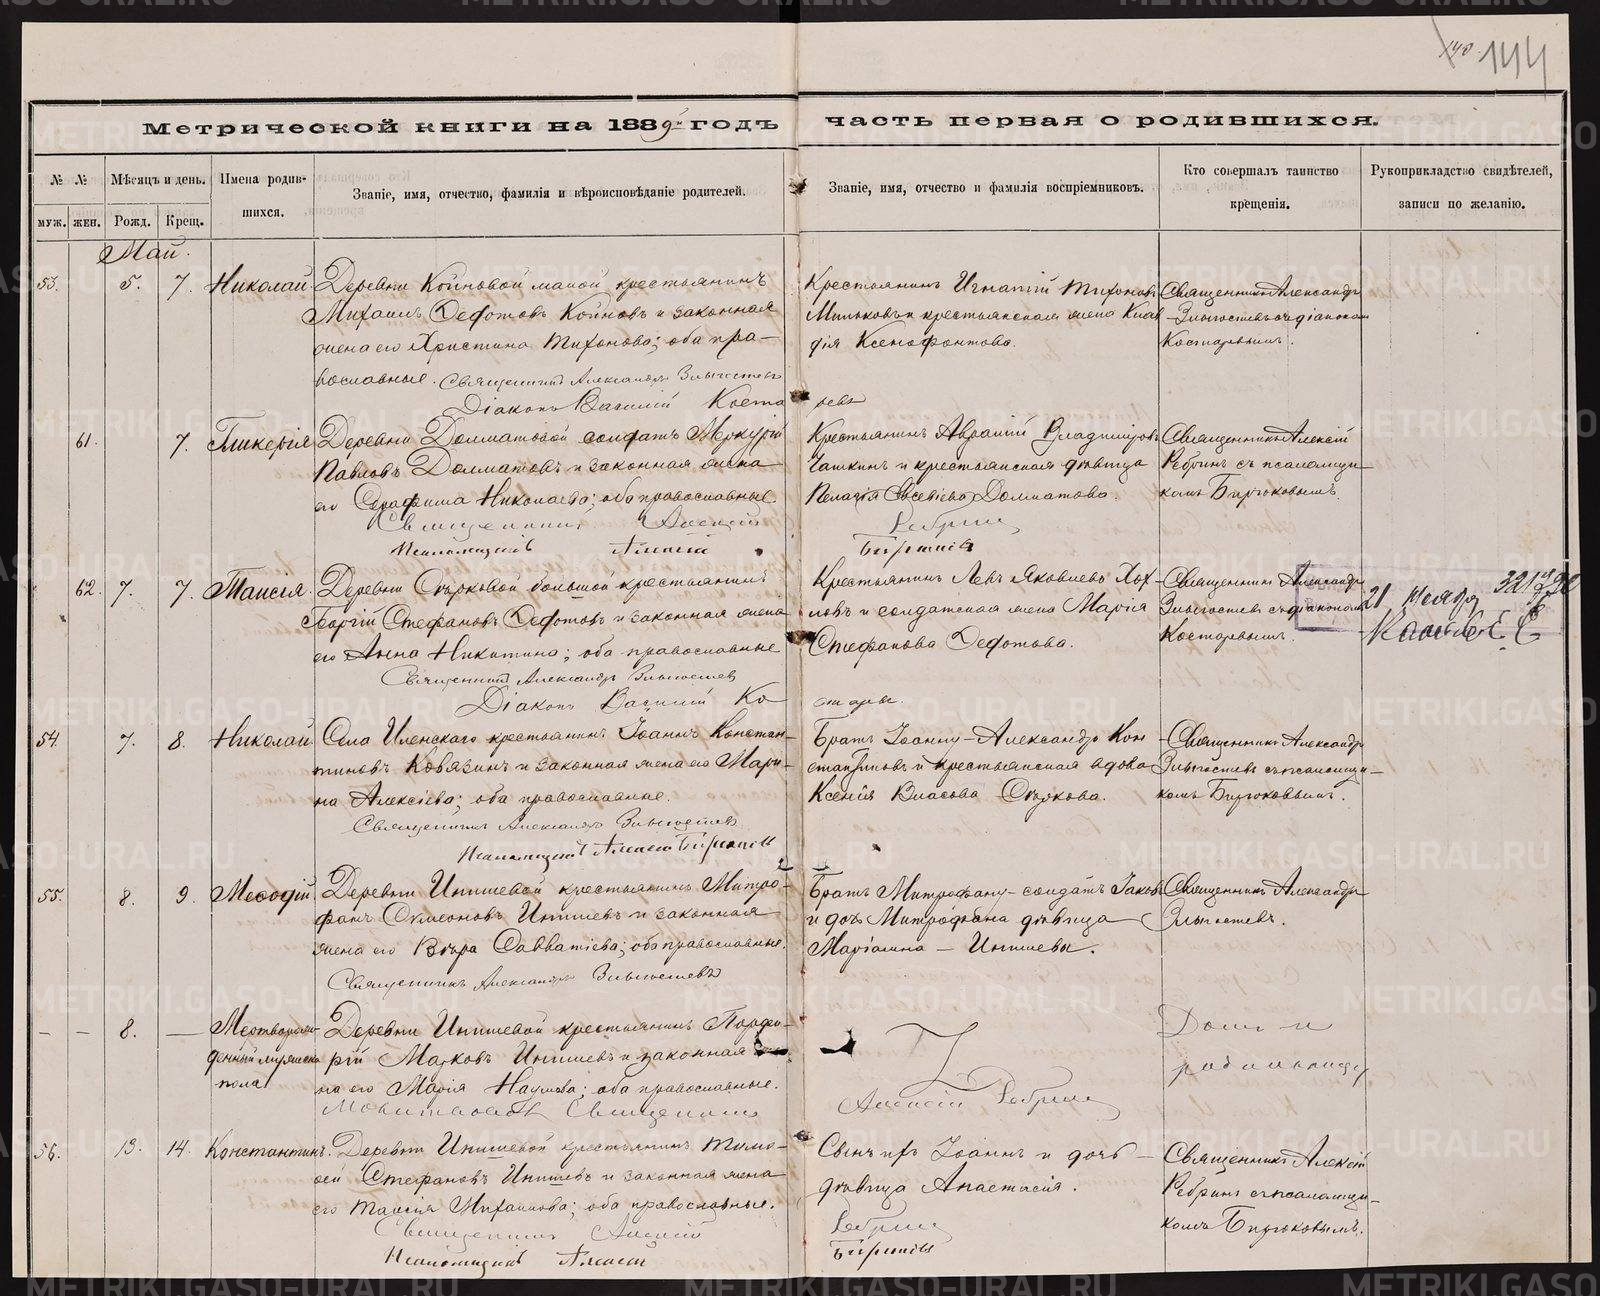 144
Метрической книги на 1889 годъ
часть первая о родившихся.
№ №
Мѣсяцъ и день.
Имена родив-
шихся.
Званіе, имя, отчество, фамилія и вѣроисповѣданіе родителей.
Званіе, имя, отчество и фамилія воспріемниковъ.
Кто совершалъ таинство
крещенія.
Рукоприкладство свидѣтелей,
записи по желанію.
муж. жен. Рожд. Крещ.
Май.
53. 5. 7. Николай
Деревни Койновой малой крестьянинъ
Михаилъ Ѳедотовъ Койновъ и законная
жена его Христина Тихонова; оба пра-
вославные. Священникъ Александръ
Діаконъ Василій Коста ревъ
Крестьянинъ Игнатій Тихоновъ
Миньковъ и крестьянская жена Клав
дія Ксенофонтова.
Священникъ Александръ
съ діакономъ
Костаревымъ.
61. 7. Гликерія
Деревни Долматовой солдатъ Меркурій
Павловъ Долматовъ и законная жена
его Серафима Николаева; оба православные
Священникъ Алексій Ребринъ
Псаломщикъ Алексій Бирюковъ
Крестьянинъ Авраамій Владиміровъ
Чашкинъ и крестьянская дѣвица
Пелагія Евсевіева Долматова.
Священникъ Алексій
Ребринъ съ псаломщи
комъ Бирюковымъ.
62. 7. 7. Таисія.
Деревни большой крестьянинъ
Георгій Стефановъ Ѳедотовъ и законная жена
его Анна Никитина; оба православные
Священникъ Александръ
Діаконъ Василій Ко старевъ
Крестьянинъ Левъ Яковлевъ Хох-
ловъ и солдатская жена Марія
Стефанова Ѳедотова.
Священникъ Александръ
съ діакономъ
Костаревымъ.
21
54. 7. 8. Николай
Села Иленскаго крестьянинъ Іоаннъ Констан-
тиновъ Ковязинъ и законная жена его Мари-
на Алексіева; оба православные.
Священникъ Александръ
Псаломщикъ Алексій Бирюковъ
Братъ Іоанну - Александръ Кон
стантиновъ и крестьянская вдова
Ксенія Власова
Священникъ Александръ
съ псаломщи-
комъ Бирюковымъ.
55. 8. 9. Меѳодій
Деревни Инишевой крестьянинъ Митро-
фанъ Симеоновъ Инишевъ и законная
жена его Вѣра Савватіева; оба православные.
Священникъ Александръ
Братъ Митрофану - солдатъ Іаковъ
и дочь Митрофана дѣвица
Маріамна - Инишевы.
Священникъ Александръ
— — 8. — Мертворож-
денный мужеска
пола
Деревни Инишевой крестьянинъ Порфи-
рій Марковъ Инишевъ и законная же-
на его Марія Наумова; оба православные.
Молитвовалъ Священникъ Алексій Ребринъ
Домъ и
родильницу
56. 13. 14. Константинъ.
Деревни Инишевой крестьянинъ Тимо-
ѳей Стефановъ Инишевъ и законная жена
его Таисія Михаилова; оба православные.
Священникъ Алексій Ребринъ
Псаломщикъ Алексій Бирюковъ
Сынъ ихъ Іоаннъ и дочь
дѣвица Анастасія.
Священникъ Алексій
Ребринъ съ псаломщи-
комъ Бирюковымъ.
METRIKI.GASO-URAL.RU